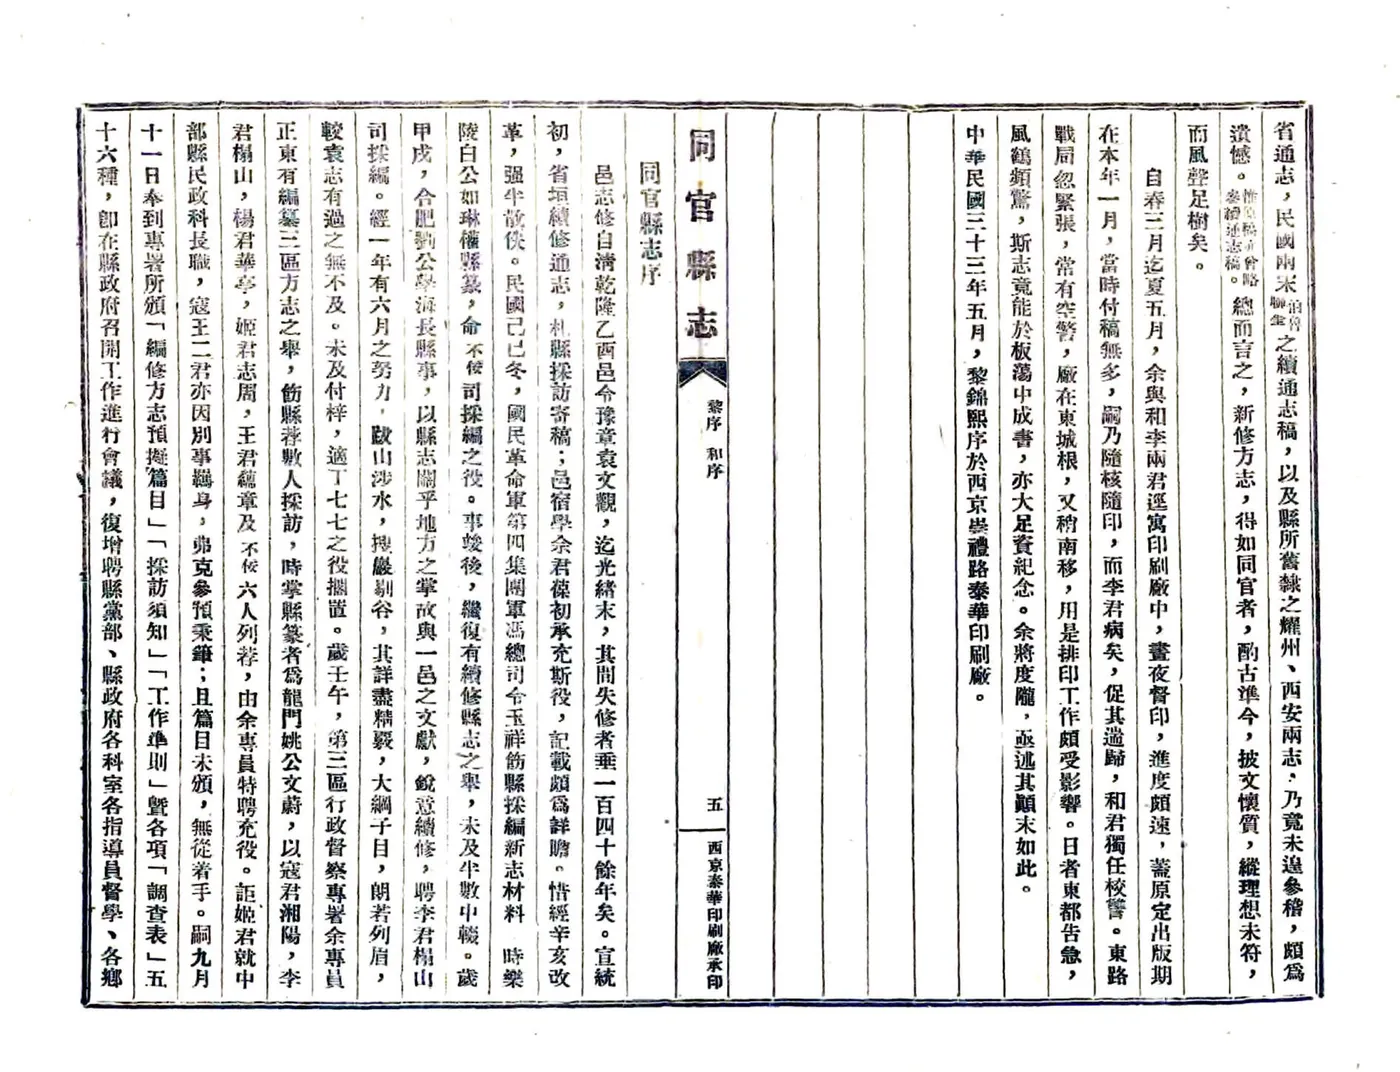 省通志，民國兩宋伯魯聯奎之續通志稿，以及縣所舊隸之耀州、西安兩志，乃竟未遑參稽，頗爲
遺憾。惟會略參續通志稿。總而言之，新修方志，得如同官者，酌古準今，披文懷質，縱理想未符，
而風聲足樹矣。
自春三月迄夏五月，余與和李兩君逕寓印刷廠中，晝夜督印，進度頗速，蓋原定出版期
在本年一月，當時付稿無多，嗣乃隨核隨印，而李君病矣，促其遄歸，和君獨任校讐。東路
戰局忽緊張，常有空警，廠在東城根，又稍南移，用是排印工作頗受影響。日者東都告急，
風鶴頻驚，斯志竟能於板蕩中成書，亦大足資紀念。余將度隴，亟述其顚末如此。
中華民國三十三年五月，黎錦熙序於西京崇禮路泰華印刷廠。
同官縣志
黎序 和序
五
西京泰華印刷廠承印
同官縣志序
邑志修自淸乾隆乙酉邑令豫章袁文觀，迄光緒末，其間失修者垂一百四十餘年矣。宣統
初，省垣續修通志，札縣採訪寄稿；邑宿學余君葆初承充斯役，記載頗爲詳贍。惜經辛亥改
革，强半散佚。民國己巳冬，國民革命軍第四集團軍馮總司令玉祥飭縣採編新志材料，時樂
陵白公如琳權縣篆，命不佞司採編之役。事竣後，繼復有續修縣志之舉，未及半數中輟。歲
甲戌，合肥劉公學海長縣事，以縣志關乎地方之掌故與一邑之文獻，銳意續修，聘李君榻山
司採編。經一年有六月之努力，跋山涉水，搜巖剔谷，其詳盡精覈，大綱子目，朗若列眉，
較袁志有過之無不及。未及付梓，適丁七七之役擱置。歲壬午，第三區行政督察專署余專員
正東有編纂三區方志之舉，飭縣荐數人採訪，時掌縣篆者爲龍門姚公文蔚，以寇君湘陽，李
君榻山，楊君華亭，姬君志周，王君蘊章及不佞六人列荐，由余專員特聘充役。詎姬君就中
部縣民政科長職，寇王二君亦因別事羈身，弗克參預秉筆；且篇目未頒，無從着手。嗣九月
十一日奉到專署所頒「編修方志預擬篇目」「採訪須知」「工作準則」曁各項「調查表」五
十六種，卽在縣政府召開工作進行會議，復增聘縣黨部、縣政府各科室各指導員督學、各鄉